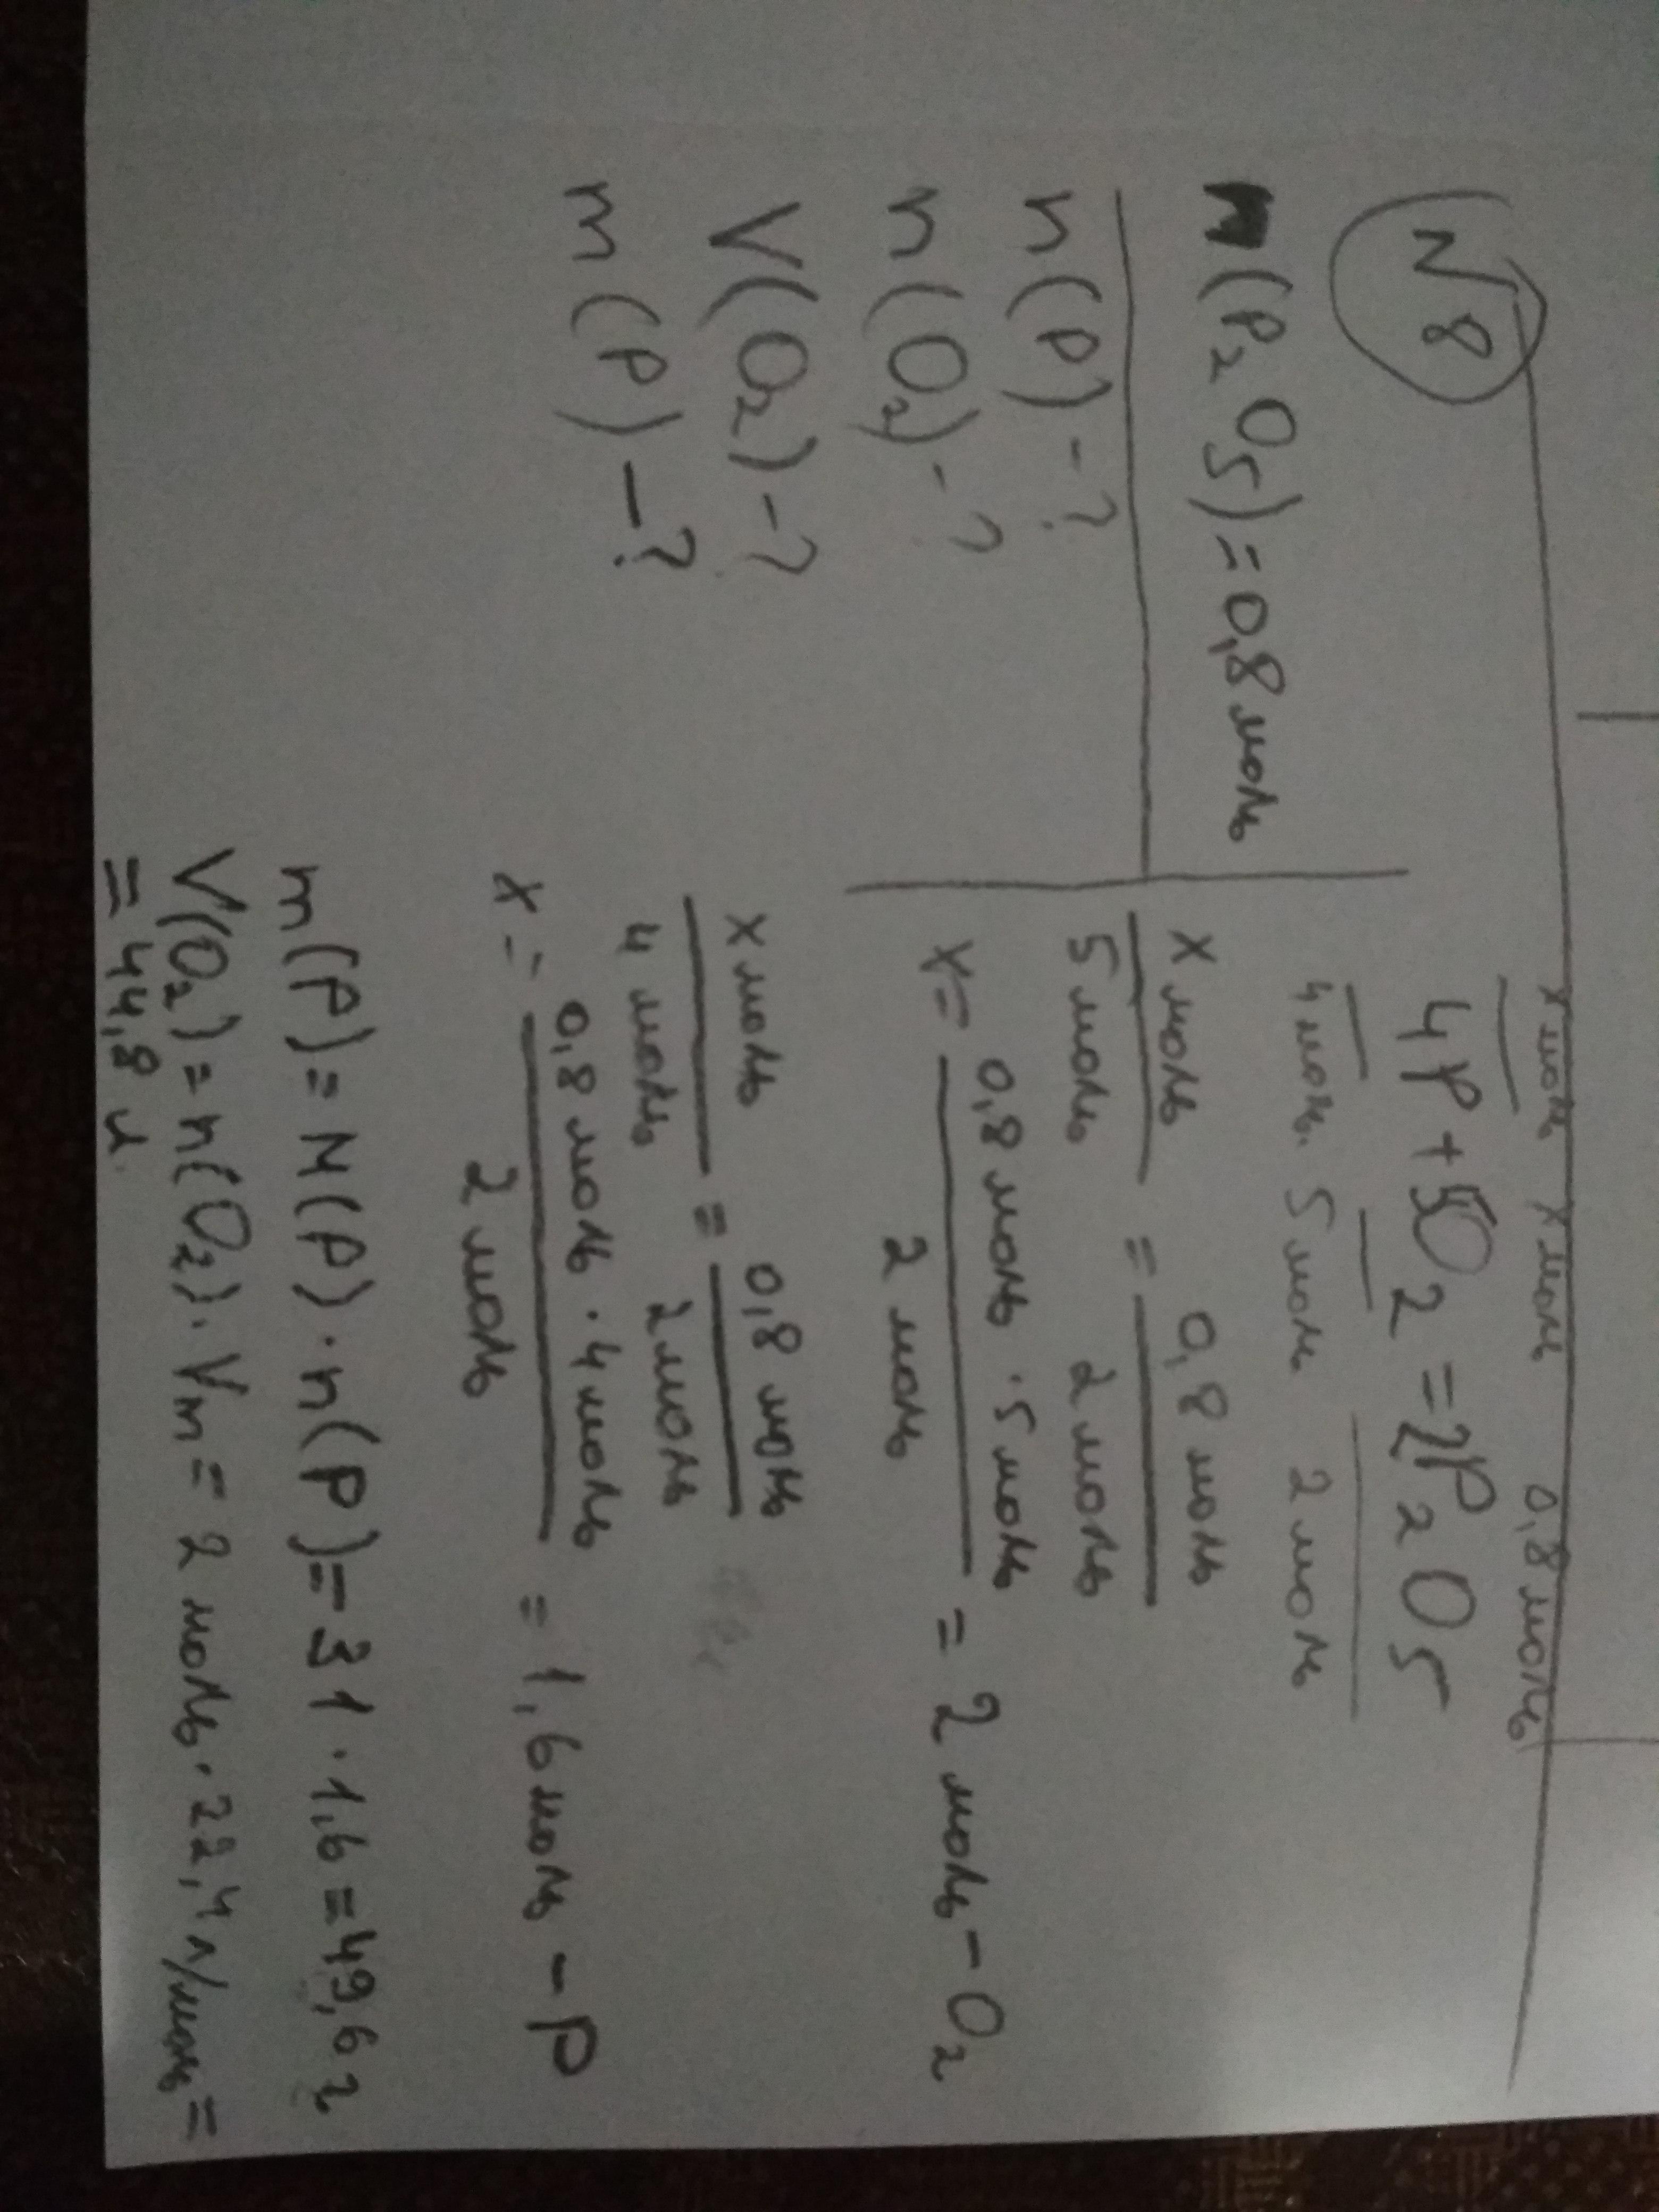 N8
n(P2O5)=0,8 моль
n(P)-?
n(O2)-?
V(O2)-?
m(P)-?
x моль x моль 0,8 моль
4P+5O2=2P2O5
4 моль 5 моль 2 моль
x моль / 5 моль = 0,8 моль / 2 моль
x= 0,8 моль · 5 моль / 2 моль = 2 моль - O2
x моль / 4 моль = 0,8 моль / 2 моль
x= 0,8 моль · 4 моль / 2 моль = 1,6 моль - P
m(P)=M(P)·n(P)=31·1,6=49,6 г
V(O2)=n(O2)·Vm=2 моль·22,4 л/моль=
=44,8 л